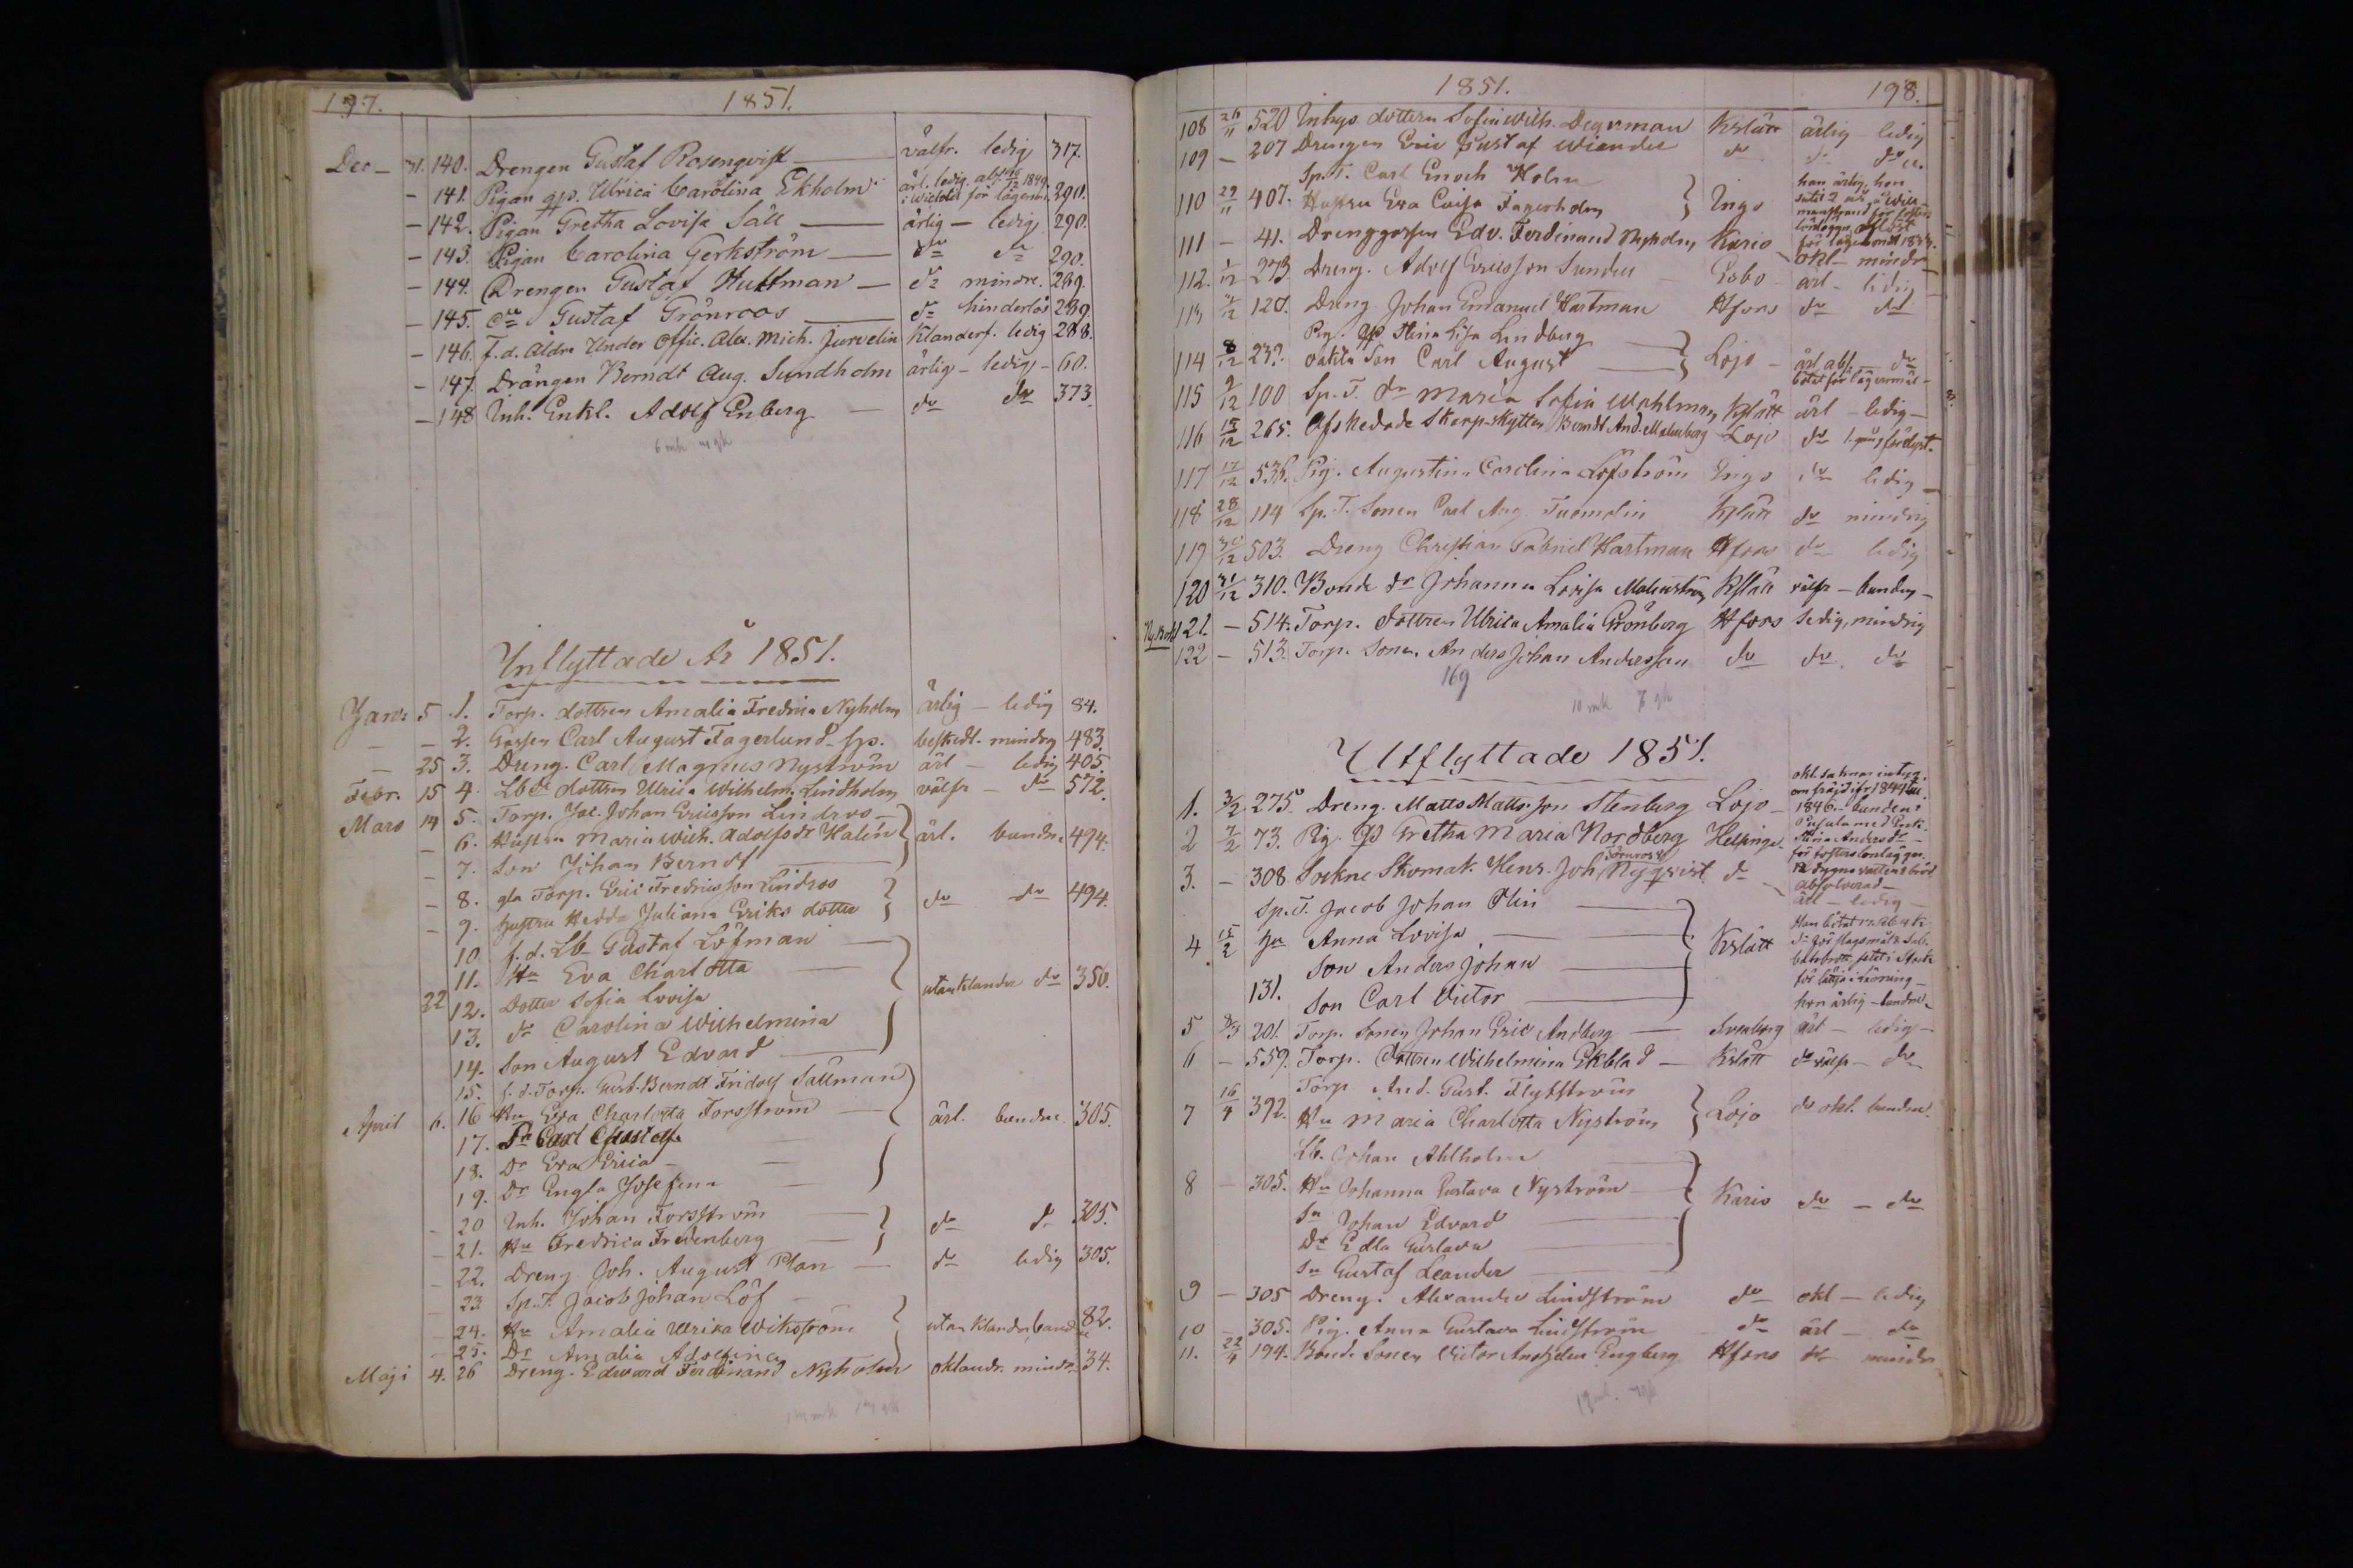 197. 1851.
Dec – 31. 140. Drengen Gustaf Rosenqvist — välfr. ledig 317.
– 141. Pigan qp. Ulrica Carolina Ekholm ärl. ledig. abs. 1849. i Wichtis för lägersm. 290.
– 142. Pigan Gretha Lovisa Säll — ärlig – ledig 290.
– 143. Pigan Carolina Gerkström — do do 290.
– 144. Drengen Gustaf Huttman — do mindre. 289.
– 145. do Gustaf Grönroos — do hinderlös 289.
– 146. f.d. Äldre Under Offic. Alex. Mich. Jurvelin Klanderf. ledig 288.
– 147. Drängen Berndt Aug. Sundholm ärlig – ledig – 60.
– 148 Inh. Enkl. Adolf Enberg — do do 373.
6 mk
Inflyttade År 1851.
Janr: 5 1. Torp. dottren Amalia Fredrica Nyholm ärlig – ledig 84.
– – 2. Gossen Carl August Fagerlund sp. beskedl. mindrg 483.
– 25 3. Dreng. Carl Magnus Nyström ärl – ledig 405
Febr. 15 4. Lbd dottren Ulrica Wilhelm. Lindholm välfr – do 572.
Mars 14 5. Torp. Jac. Johan Ericsson Lindros –
– 6. Hustru Maria Wilh. Adolfsdr Halén ärl. bundn. 494.
– 7. Son Johan Berndt —
– 8. gla Torp. Eric Fredricsson Lindros
– 9. hustru Hedda Juliana Eriks dotter do do 494.
10 f.d. Lb Gustaf Löfman —
11. Hu Eva Charlotta —
22 12. Dotter Sofia Lovisa utan klander do 350.
13. do Carolina Wilhelmina
14. Son August Edvard —
15. f.d. Torp. Gust. Berndt Fridolf Sällman
April 6. 16 Hu Eva Charlotta Forsström — ärl. bundne. 305.
17. Sn Carl Gustaf
18. Dr Eva Erica –
19. Dr Engla Josefina —
– 20 Inh. Johan Forsström — do do 305.
– 21. Hu Fredrica Fredenberg —
– 22. Dreng Joh. August Plan — do ledig 305.
– 23 Sp.T. Jacob Johan Löf –
– 24. Hu Amalia Ulrika Wikström utan klander, bundn 82.
– 25. Dr Amalia Adolfina
Maji 4. 26 Dreng. Edward Ferdinand Nyholm oklandr. mindr. 34.
1851. 198.
108 26/11 520 Inhys dottern Sofia Wilh. Degerman Kslätt ärlig – ledig
109 – 207 Drengen Eric Gustaf Wiander do do do
Sp.T. Carl Enoch Holm
110 29/11 407. Hustru Eva Caisa Fagerholm Ingo han ärlig, hon
111 – 41. Drenggossen Edv. Ferdinand Nyholm Karis okl – mindr
112. 1/12 273 Dreng. Adolf Ericsson Sundell – Esbo – ärl – ledig –
113 4/12 128. Dreng Johan Emanuel Hartman Hfors do do
Pig. qp Stina Lisa Lindberg
114 8/12 232. oäkta Son Carl August — Lojo – ärl abs. do
bötat för lägersmål –
115 9/12 100 Sp.T. dr Maria Sofia Wahlman Kslätt ärl – ledig –
116 15/12 265. Afskedade Skarpskytten Berndt And. Malmberg Lojo do
117 17/12 538. Pig. Augustina Carolina Löfström Ingo do ledig –
118 28/12 114 Sp.T. Sonen Carl Aug. Tuomolin Kslätt do mindrig
119 30/12 503. Dreng Christian Gabriel Hartman Hfors do ledig
120 31/12 310. Bonde dr Johanna Lovisa Malmström Kslätt välfr – bunden –
121. – 514. Torp. dottren Ulrica Amalia Grönberg Hfors sedig, mindrig
122 – 513. Torp. Sonen Anders Johan Andersson do do do
169
10 mk
Utflyttade 1851.
1. 3/2 275. Dreng. Matts Mattsson Stenberg Lojo – okl. saknar intyg.
2 7/2 73. Pig. qp Gretha Maria Nordberg Helsinge
3. – 308. Sockne Skomak. Henr. Joh. Nyqvist do ärl – ledig –
Sp.T. Jacob Johan Plin —
4. 15/2 Hu Anna Lovisa — Kslätt
Son Anders Johan —
131. Son Carl Victor — hon ärlig – bundne.
5 201. Torp. Sonen Johan Eric Andberg — Svenborg ärl – ledig –
6 – 559. Torp. Dottren Wilhelmina Ekblad — Kslätt do välfr – do
Torp. And. Gust. Flyktström
7 16/4 392. Hu Maria Charlotta Nyström Lojo do okl. bundne.
Lb. Johan Ahlholm
8 – 305. Hu Johanna Gustava Nyström – Karis do – do
Sn Johan Edvard —
Dr Edla Gustava —
Sn Gustaf Leander —
9 – 305 Dreng. Alexander Lindström do okl – ledig
10 – 305. Pig. Anna Gustava Lindström do ärl – do
11. 22/4 194. Bond. Sonen Victor Anshelm Engberg Hfors do mindr